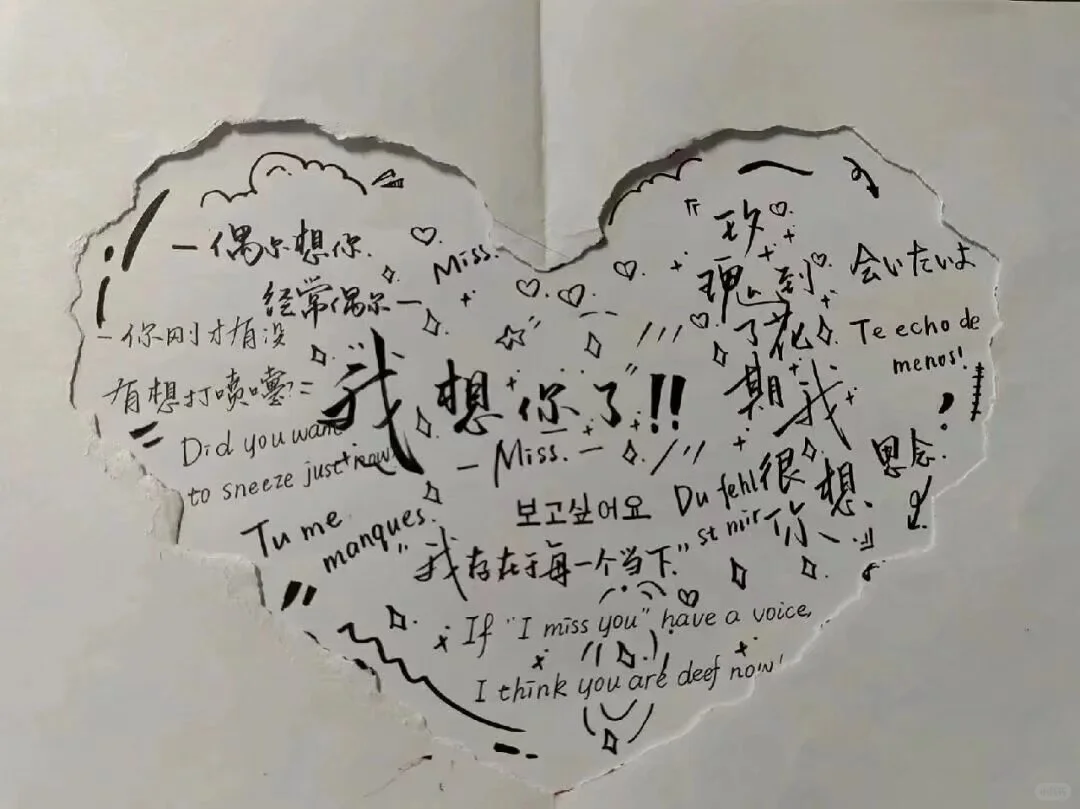 一偶尔想你.
经常偶尔一
Miss.
一你刚才有没
有想打喷嚏?
Did you want
to sneeze just now
我想你了!!
— Miss. —
现
到了花期
我很想你、
会いたいよ
Te echo de
menos!
思念.
보고싶어요
Du fehl
st mir
Tu me
manques.
"我存在于每一个当下."
If "I miss you" have a voice,
I think you are deef now!